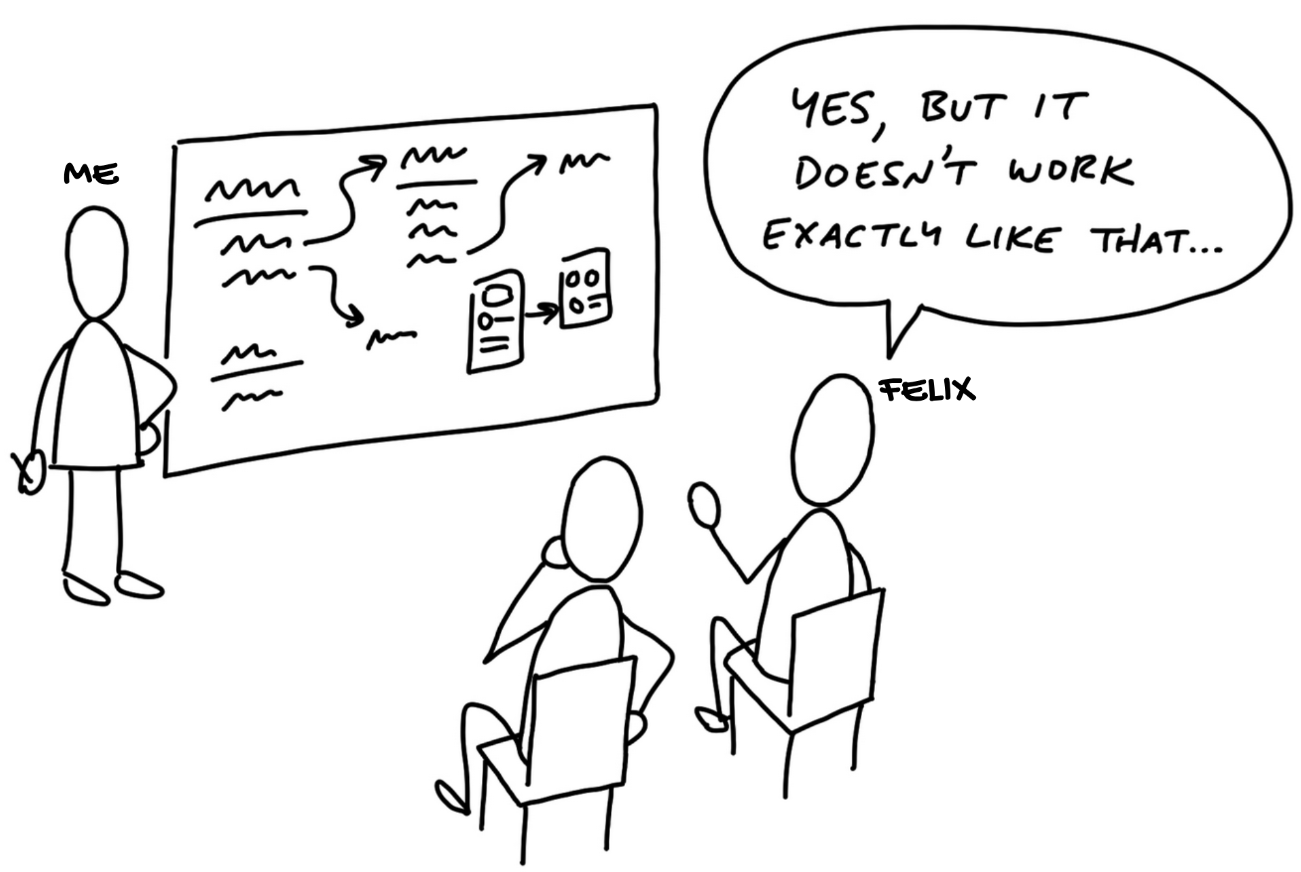 ME
YES, BUT IT
DOESN'T WORK
EXACTLY LIKE THAT...
FELIX